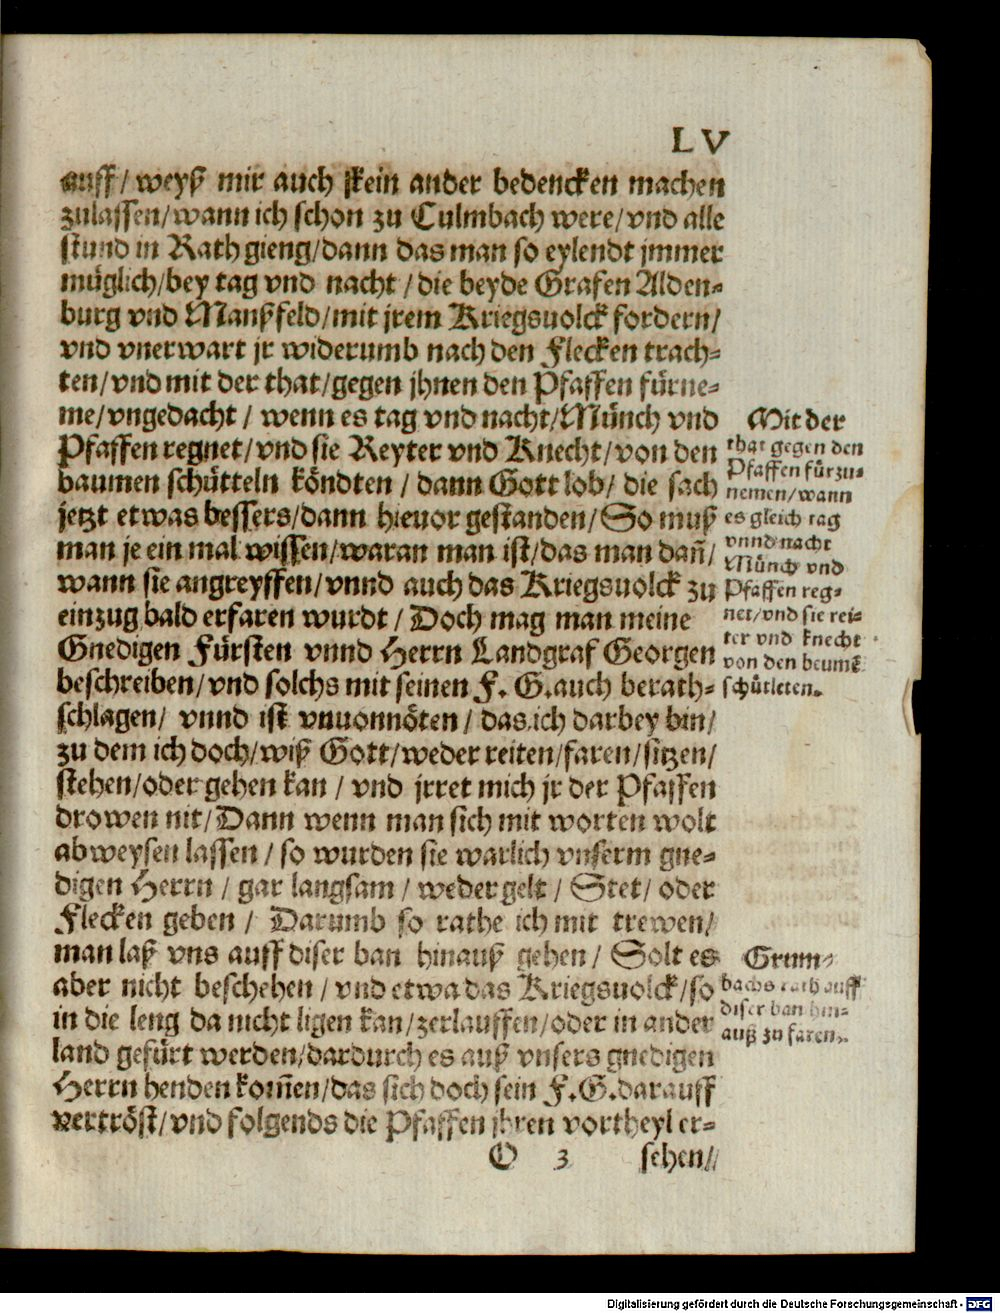 LV
auff/ weyß mir auch kein ander bedencken machen
zulassen/wann ich schon zu Culmbach were/vnd alle
stund in Rath gieng/dann das man so eylendt jmmer
müglich/bey tag vnd nacht/die beyde Grafen Alden-
burg vnd Manßfeld/mit jrem Kriegsuolck fordern/
vnd vnerwart jr widerumb nach den Flecken trach-
ten/vnd mit der that/gegen jhnen den Pfaffen fürne-
me/vngedacht/ wenn es tag vnd nacht/Münch vnd
Pfaffen regnet/vnd sie Reyter vnd Knecht/von den
baumen schütteln köndten/ dann Gott lob/ die sach
jetzt etwas bessers/dann hieuor gestanden/So muß
man je ein mal wissen/waran man ist/das man dañ/
wann sie angreyffen/vnnd auch das Kriegsuolck zu
einzug bald erfaren wurdt/ Doch mag man meine
Gnedigen Fürsten vnnd Herrn Landgraf Georgen
beschreiben/vnd solchs mit seinen F. G. auch berath-
schlagen/ vnnd ist vnuonnöten/ das ich darbey bin/
zu dem ich doch/wiß Gott/weder reiten/faren/sitzen/
stehen/oder gehen kan/ vnd jrret mich jr der Pfaffen
drowen nit/Dann wenn man sich mit worten wolt
abweysen lassen/ so wurden sie warlich vnserm gne-
digen Herrn/ gar langsam/ weder gelt/ Stet/ oder
Flecken geben/ Darumb so rathe ich mit trewen/
man laß vns auff diser ban hinauß gehen/ Solt es
aber nicht beschehen/ vnd etwa das Kriegsuolck/so
in die leng da nicht ligen kan/zerlauffen/oder in ander
land gefürt werden/dardurch es auß vnsers gnedigen
Herrn henden kom̃en/das sich doch sein F.G.darauff
vertröst/vnd folgends die Pfaffen jhren vortheyl er-
O 3 sehen/
Mit der
that gegen den
Pfaffen fürzu-
nemen/wann
es gleich tag
vnnd nacht
Münch vnd
Pfaffen reg-
net/vnd sie rei-
ter vnd knecht
von den beumẽ
schütleten.
Grum-
bachs rath auff
diser ban hin-
auß zu faren.
Digitalisierung gefördert durch die Deutsche Forschungsgemeinschaft - DFG